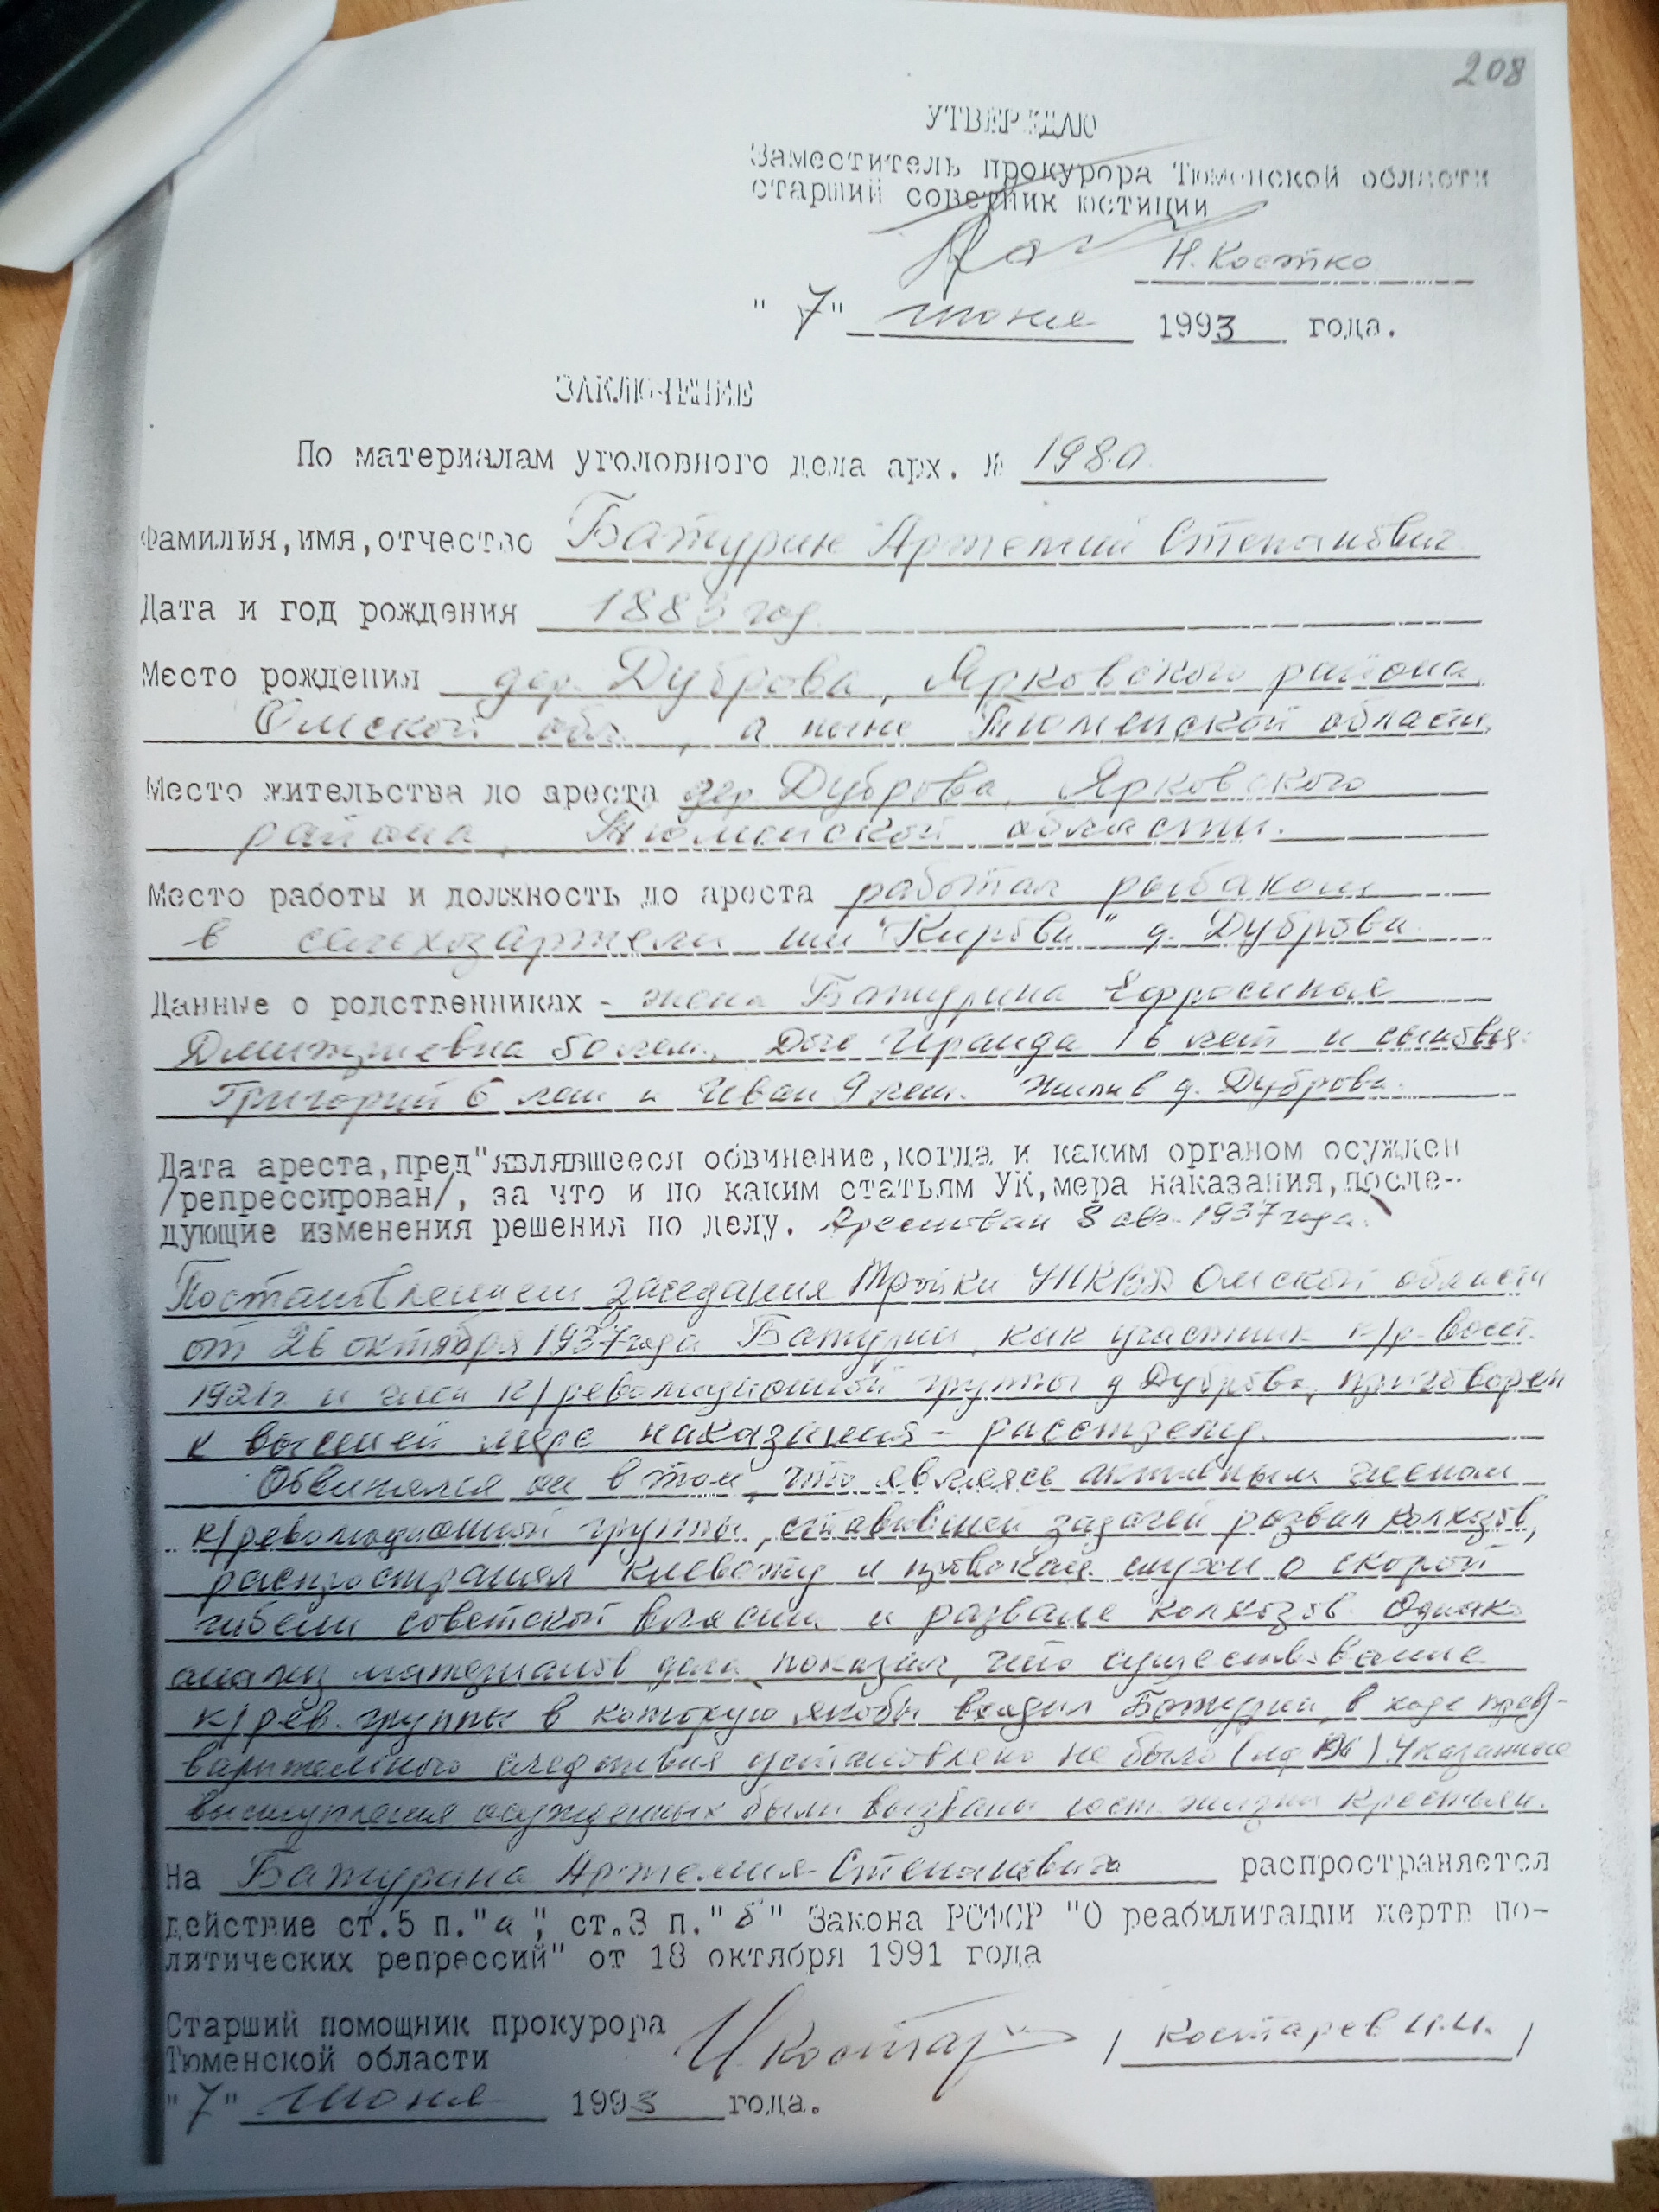 208
УТВЕРЖДАЮ
Заместитель прокурора Тюменской области
старший советник юстиции
Н. Костко
"7" июня 1993 года.
ЗАКЛЮЧЕНИЕ
По материалам уголовного дела арх. №
Фамилия,имя,отчество Батурин Артемий Степанович
Дата и год рождения год
Место рождения дер. Дуброва, Ярковского района
Омской обл., а ныне Тюменской области,
Место жительства до ареста дер. Дуброва, Ярковского
района, Тюменской области.
Место работы и должность до ареста работал рыбаком
в сельхозартели им "Кирова" д. Дуброва
Данные о родственниках - жена Батурина Ефросинья
Дмитриевна 50 лет, Ираида 16 лет и сыновья:
Григорий 6 лет и Иван 9 лет. Жили в д. Дуброва.
Дата ареста,пред"являвшееся обвинение,когда и каким органом осужден
/репрессирован/, за что и по каким статьям УК,мера наказания,после-
дующие изменения решения по делу. Арестован 8 авг. 1937 года.
Постановлением заседания Тройки УНКВД Омской области
от 26 октября 1937 года Батурин, как участник к/р. восст.
1921г. и член к/революционной группы д Дуброва, приговорен
к высшей мере наказания - расстрелу.
Обвинялся он в том, что являясь активным членом
к/революционной группы, ставившей задачей развал колхозов,
распространял клевету и провокац. слухи о скорой
гибели советской власти и развале колхозов. Однако
анализ материалов дела показал, что существование
к/рев. группы в которую якобы входил Батурин, в ходе пред-
варительного следствия установлено не было Указанные
выступления осужденных были вызваны жизни крестьян.
На Батурина Артемия Степановича распространяется
действие ст.5 п."а", ст.3 п."б" Закона РСФСР "О реабилитации жертв по-
литических репрессий" от 18 октября 1991 года
Старший помощник прокурора
Тюменской области И Костар / Костарев И.И. /
"7" июня 1993 года.